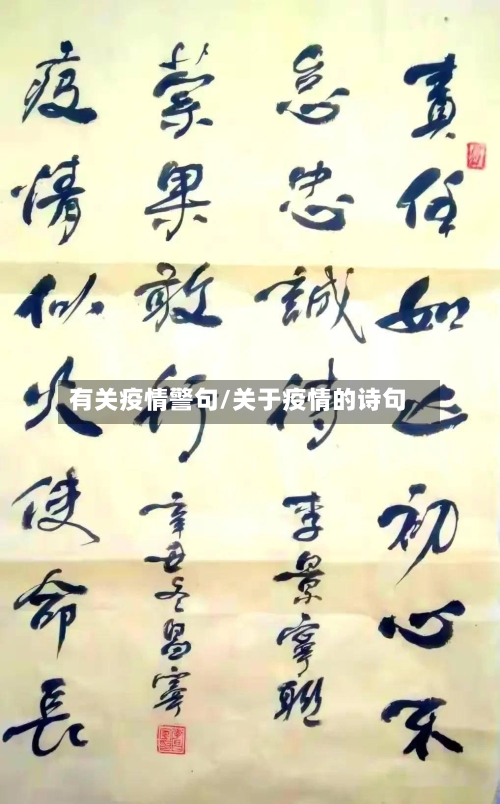 責任如山初心不
忘忠誠待
李景寧聯
疫情似火使命長
榮果敢行
辛丑冬昌寧
有关疫情警句/关于疫情的诗句